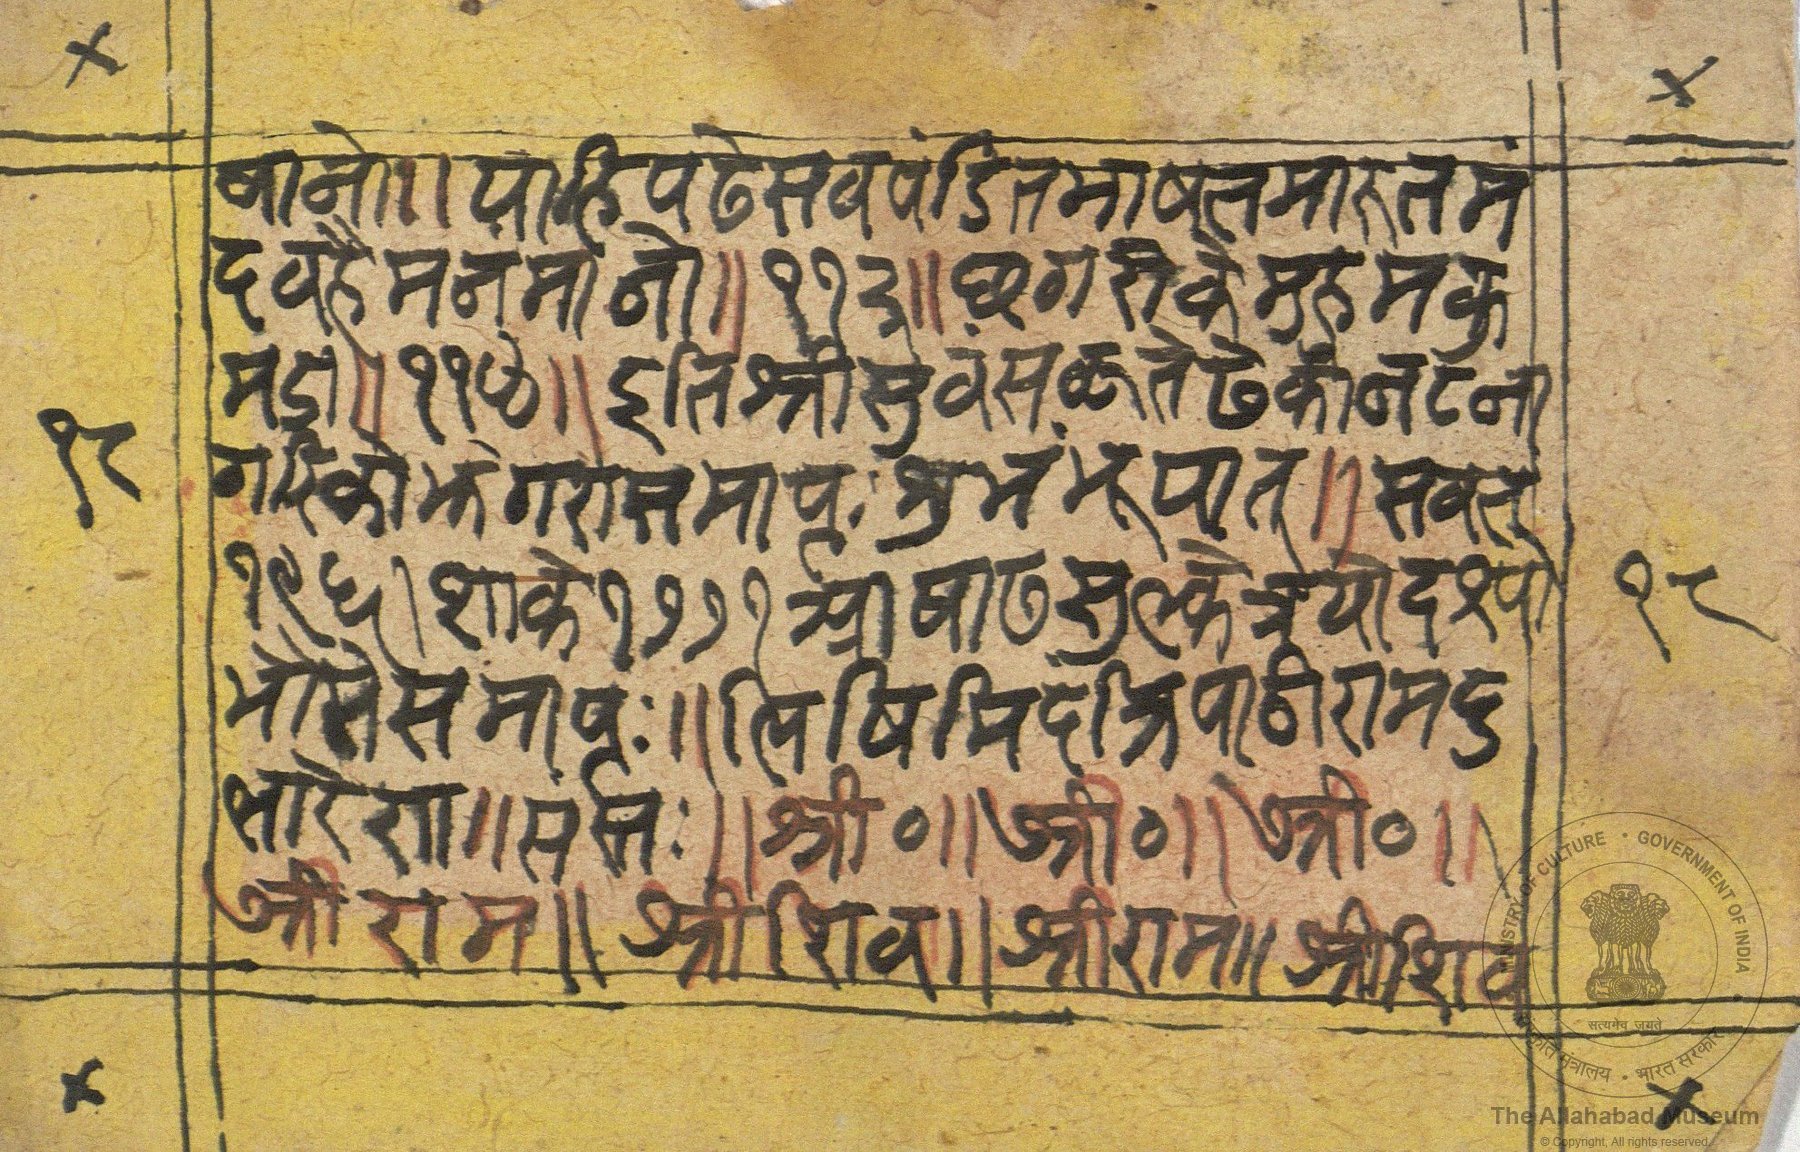 जानो॥ याहि पढे सब पंडित भाषत मारुत मं
द बहै मन मानो॥ ११३॥
मडा॥ ११४॥ इति श्री सुवंस कृते ढेकी नटना
गरि को झगरो समाप्तः शुभं भूयात्॥ संवत्
१९६। शाके १७७१ आषाढ सुल्के त्रयोदश्यां
समाप्तः॥ लिषिमिदं त्रिपाठी राम दु
लारे
श्री०॥ श्री०॥ श्री०॥
श्री राम॥ श्री शिव॥ श्री राम॥ श्री शिव
१८
१८
MINISTRY OF CULTURE • GOVERNMENT OF INDIA
सत्यमेव जयते
संस्कृति मंत्रालय • भारत सरकार
The Allahabad Museum
© Copyright, All rights reserved.